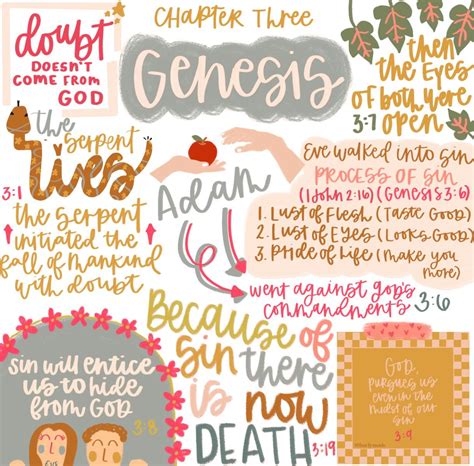 CHAPTER THREE
GENESIS
doubt
DOESN'T
COME FROM
GOD
then
the EYES
OF both were
3:7 open
the
serpent
LIES
3:1
the serpent
initiated the
fall of Mankind
with doubt
Adam
Eve walked into sin
PROCESS OF SIN
(1 John 2:16) (GENESIS 3:6)
1. LUST OF FLESH (TASTE GOOD)
2. LUST OF EYES (LOOKS GOOD)
3. PRIDE OF LIFE (MAKE YOU
MORE)
went against God's
commandments 3:6
sin will entice
us to hide
from God
3:8
EVE
Because of
sin there
is now
DEATH 3:19
GOD
pursues us
even in the
midst of our
sin
3:9